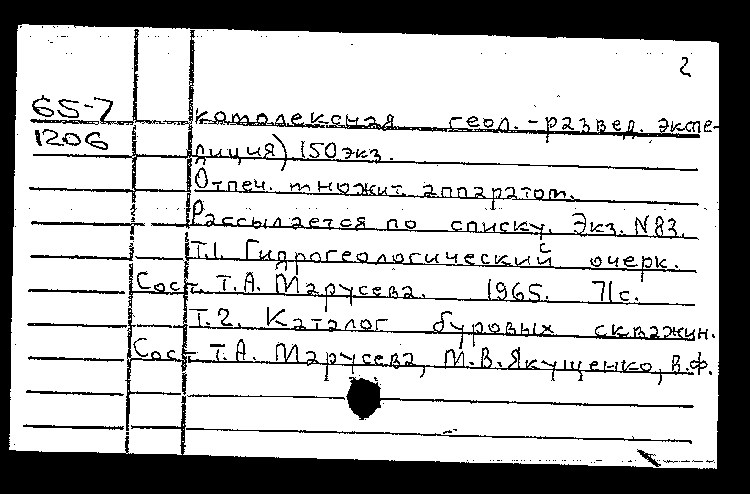 2
65-7 комплексная геол.-развед. экспе-
1206 диция) 150 экз.
Отпеч. множит. аппаратом.
Рассылается по списку. Экз. N83.
Т.1. Гидрогеологический очерк.
Сост. Т.А. Марусева. 1965. 71с.
Т.2. Каталог буровых скважин.
Сост. Т.А. Марусева, М.В. Якущенко, В.Ф.